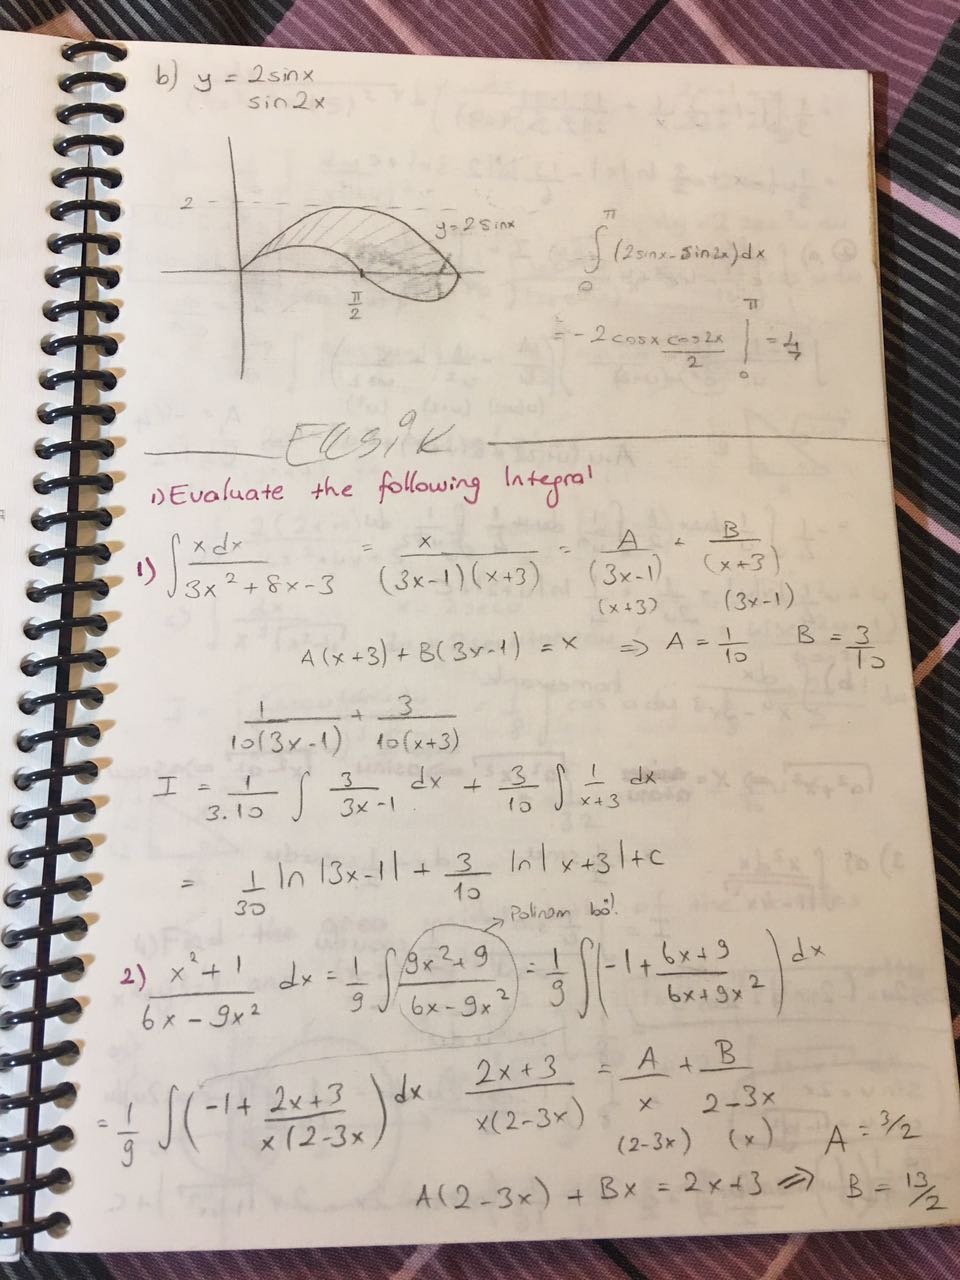 b) y = 2sinx
sin2x
2
y=2sinx
π/2
∫₀^π (2sinx-sin2x)dx
= -2cosx cos2x/2 |₀^π = 4
Eksik
1) Evaluate the following Integral
1) ∫ x dx/(3x²+8x-3) = x/((3x-1)(x+3)) = A/(3x-1) + B/(x+3)
(x+3) (3x-1)
A(x+3)+B(3x-1) = x ⇒ A = 1/10 B = 3/10
1/(10(3x-1)) + 3/(10(x+3))
I = 1/(3.10) ∫ 3/(3x-1) dx + 3/10 ∫ 1/(x+3) dx
= 1/30 ln|3x-1| + 3/10 ln|x+3|+c
→ Polinom böl.
2) (x²+1)/(6x-9x²) dx = 1/9 ∫ (9x²+9)/(6x-9x²) = 1/9 ∫(-1 + (6x+9)/(6x+9x²)) dx
= 1/9 ∫(-1 + (2x+3)/(x(2-3x))) dx (2x+3)/(x(2-3x)) = A/x + B/(2-3x)
(2-3x) (x) A = 3/2
A(2-3x) + Bx = 2x+3 ⇒ B = 13/2